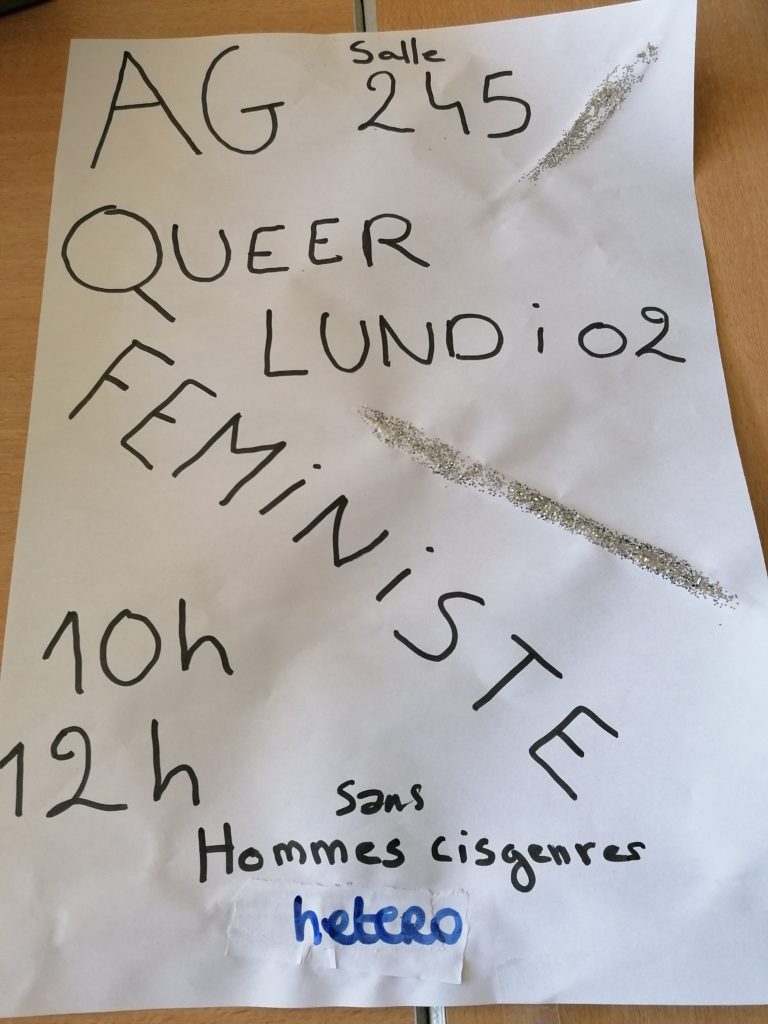 AG Salle 245
QUEER
LUNDi 02
FEMiNiSTE
10h
12h
Sans
Hommes cisgenres
hetero